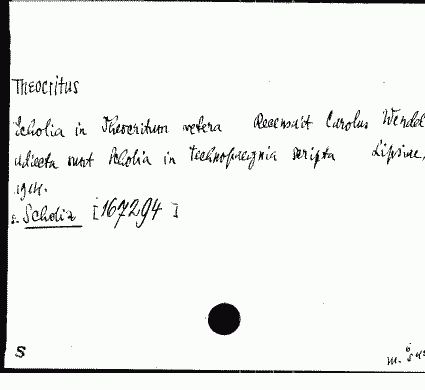 Theocritus
Scholia in Theocritum vetera Recensuit Carolus Wendel
adiecta sunt scholia in technopaegnia scripta Lipsiae,
1914.
s. Scholia [167294]
S
m.